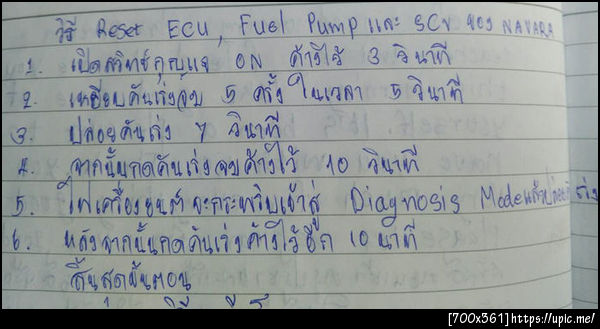 วิธี Reset ECU, Fuel Pump และ SCV ของ NAVARA
1. เปิดสวิทช์กุญแจ ON ค้างไว้ 3 วินาที
2. เหยียบคันเร่งจม 5 ครั้ง ในเวลา 5 วินาที
3. ปล่อยคันเร่ง 7 วินาที
4. จากนั้นกดคันเร่งจมค้างไว้ 10 วินาที
5. ไฟเครื่องยนต์จะกระพริบเข้าสู่ Diagnosis Mode แล้วปล่อยคันเร่ง
6. หลังจากนั้นกดคันเร่งค้างไว้อีก 10 นาที
สิ้นสุดขั้นตอน
[700x361]https://upic.me/